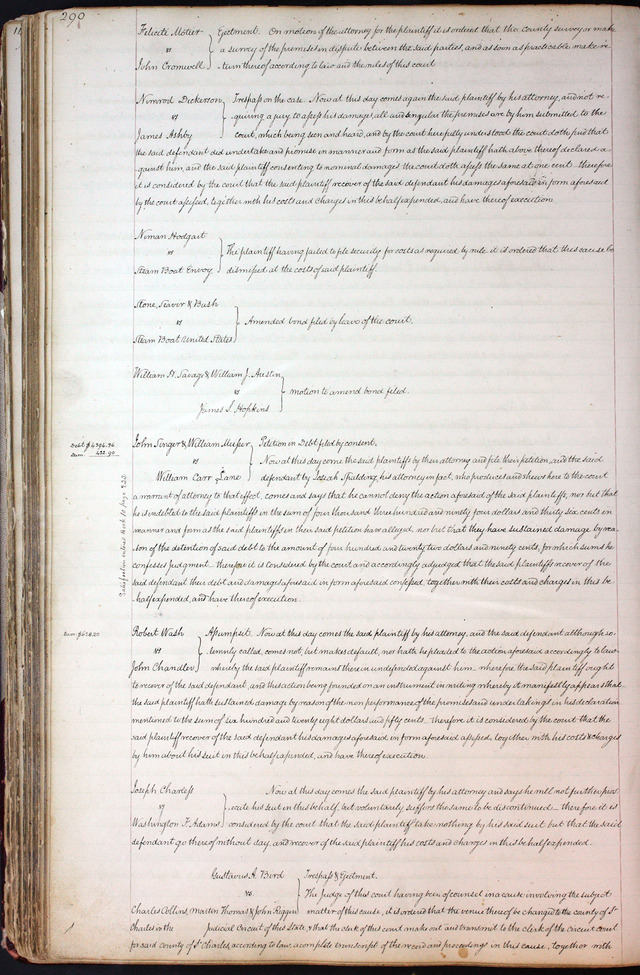 290
Felicité Motier } Ejectment. On motion of the attorney for the plaintiff it is ordered that the county surveyor make
vs a survey of the premises in dispute between the said parties, and as soon as practicable make re
John Cromwell turn thereof according to law and the rules of this court
Nimrod Dickerson } Trespass on the case. Now at this day comes again the said plaintiff by his attorney, and not re-
vs quiring a jury to assess his damages, all and singular the premises are by him submitted to the
James Ashby court, which being seen and heard, and by the court here fully understood the court doth find that
the said defendant did undertake and promise in manner and form as the said plaintiff hath above thereof declared a-
gainst him, and the said plaintiff consenting to nominal damages the court doth assess the same at one cent. therefore
it is considered by the court that the said plaintiff recover of the said defendant his damages aforesaid in form aforesaid
by the court assessed, together with his costs and charges in this behalf expended, and have thereof execution.
Niman Hodgait
vs } The plaintiff having failed to file security for costs as required by rule it is ordered that this cause be
Steam Boat Envoy dismissed at the costs of said plaintiff.
Stone, Seaver & Bush
vs } Amended bond filed by leave of the court.
Steam Boat United States
William H. Savage & William J. Austin
vs } motion to amend bond filed.
James S. Hopkins
Debt $4394.36
Dam. 422.90
John Singer & William } Petition in Debt filed by consent.
vs Now at this day come the said plaintiffs by their attorney and file their petition, and the said
William Carr Lane defendant by Josiah Spalding, his attorney in fact, who produces and shews here to the court
a warrant of attorney to that effect, comes and says that he cannot deny the action aforesaid of the said plaintiffs, nor but that
he is indebted to the said plaintiffs in the sum of four thousand three hundred and ninety four dollars and thirty six cents in
manner and form as the said plaintiffs in their said petition have alleged, nor but that they have sustained damage by rea-
son of the detention of said debt to the amount of four hundred and twenty two dollars and ninety cents, for which sums he
confesses judgment. therefore it is considered by the court and accordingly adjudged that the said plaintiffs recover of the
said defendant their debt and damages aforesaid in form aforesaid confessed, together with their costs and charges in this be-
half expended, and have thereof execution.
Satisfaction entered Book 10 page
Dam. $628.50
Robert Wash } Assumpsit. Now at this day comes the said plaintiff by his attorney, and the said defendant although so-
vs lemnly called, comes not, but makes default, nor hath he pleaded to the action aforesaid according to law
John Chandler whereby the said plaintiff remains therein undefended against him. wherefore the said plaintiff ought
to recover of the said defendant, and this action being founded on an instrument in writing whereby it manifestly appears that
the said plaintiff hath sustained damage by reason of the non performance of the promises and undertakings in his declaration
mentioned to the sum of six hundred and twenty eight dollars and fifty cents. therefore it is considered by the court that the
said plaintiff recover of the said defendant his damages aforesaid in form aforesaid assessed, together with his costs & charges
by him about his suit in this behalf expended, and have thereof execution.
Joseph Charless } Now at this day comes the said plaintiff by his attorney and says he will not further pros-
vs ecute his suit in this behalf, but voluntarily suffers the same to be discontinued — therefore it is
Washington F. Adams considered by the court that the said plaintiff take nothing by his said suit but that the said
defendant go thereof without day, and recover of the said plaintiff his costs and charges in this behalf expended.
Gustavus A. Bird } Trespass & Ejectment.
vs. The Judge of this court having been of counsel in a cause involving the subject
Charles Collins, Marten Thomas & John Riggin matter of this cause, it is ordered that the venue thereof be changed to the county of St
Charles in the Judicial Circuit of this State, & that the clerk of this court make out and transmit to the clerk of the circuit court
for said County of St Charles, according to law, a complete transcript of the record and proceedings in this cause, together with